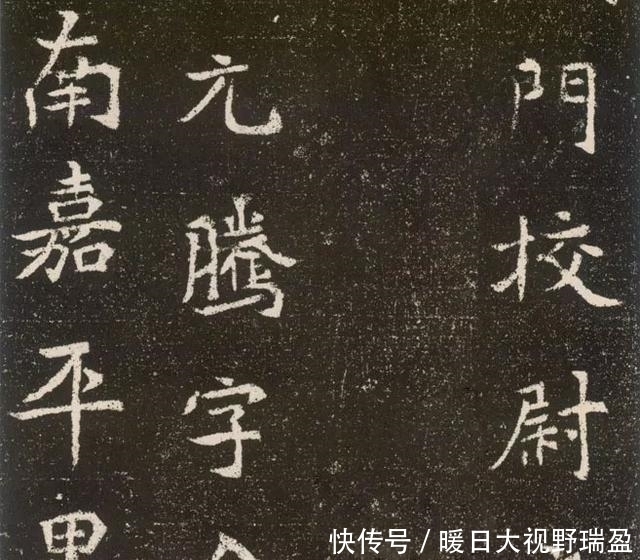 門校尉
元騰字
南嘉平
快传号/暖日大视野瑞盈